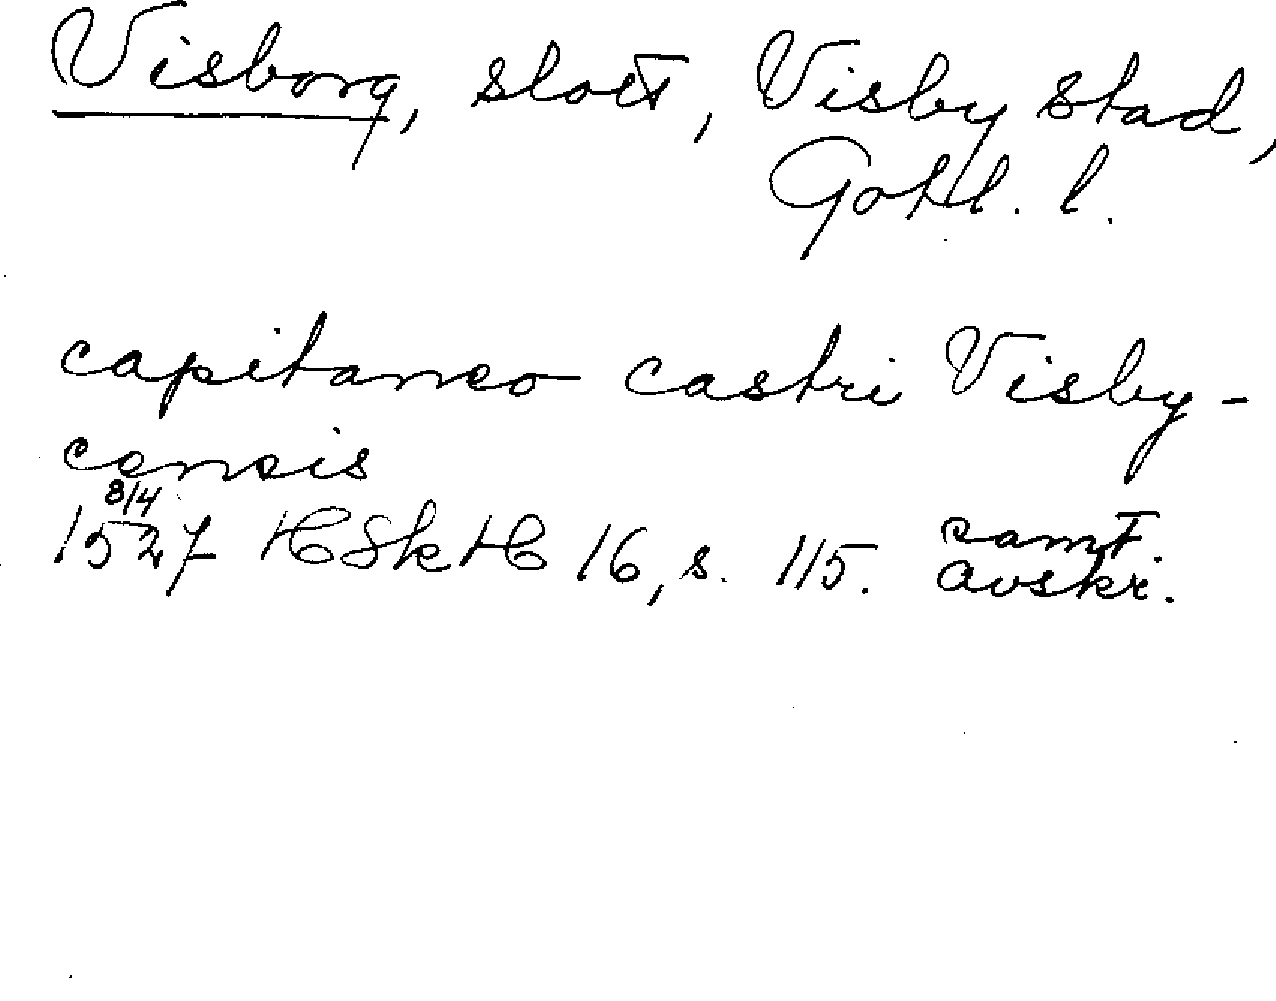 Visborg, slott, Visby stad,
Gotl. l.
capitaneo castri Visby-
censis
8/4
1527 HSkH 16, s. 115. samt.
avskr.